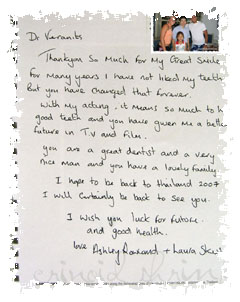 Dr
Thankyou So Much for My Great Smile
for Many years I have not liked my teeth
But you have changed that forever.
With My acting, it means so much to h
good teeth and you have given me a bette
future in T.V and Film.
you are a great dentist and a very
nice man and you have a lovely family
I hope to be back to Thailand 2007
I will Certainly be back to see you.
I wish you luck for future
and good health.
love Ashley + Laura